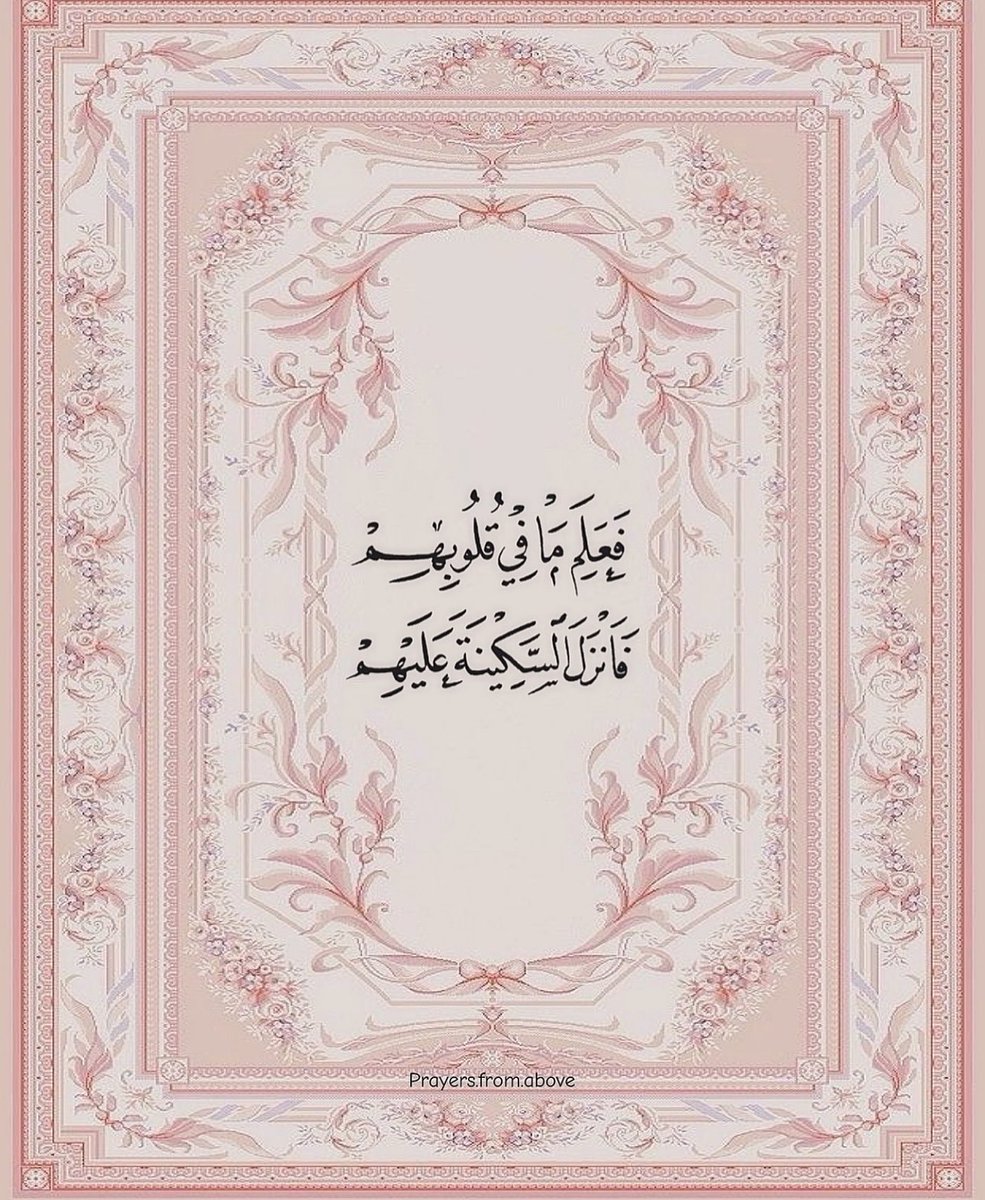 فَعَلِمَ مَا فِيْ قُلُوبِهِمْ
فَأَنْزَلَ ٱلسَّكِينَةَ عَلَيْهِمْ
Prayers.from.above